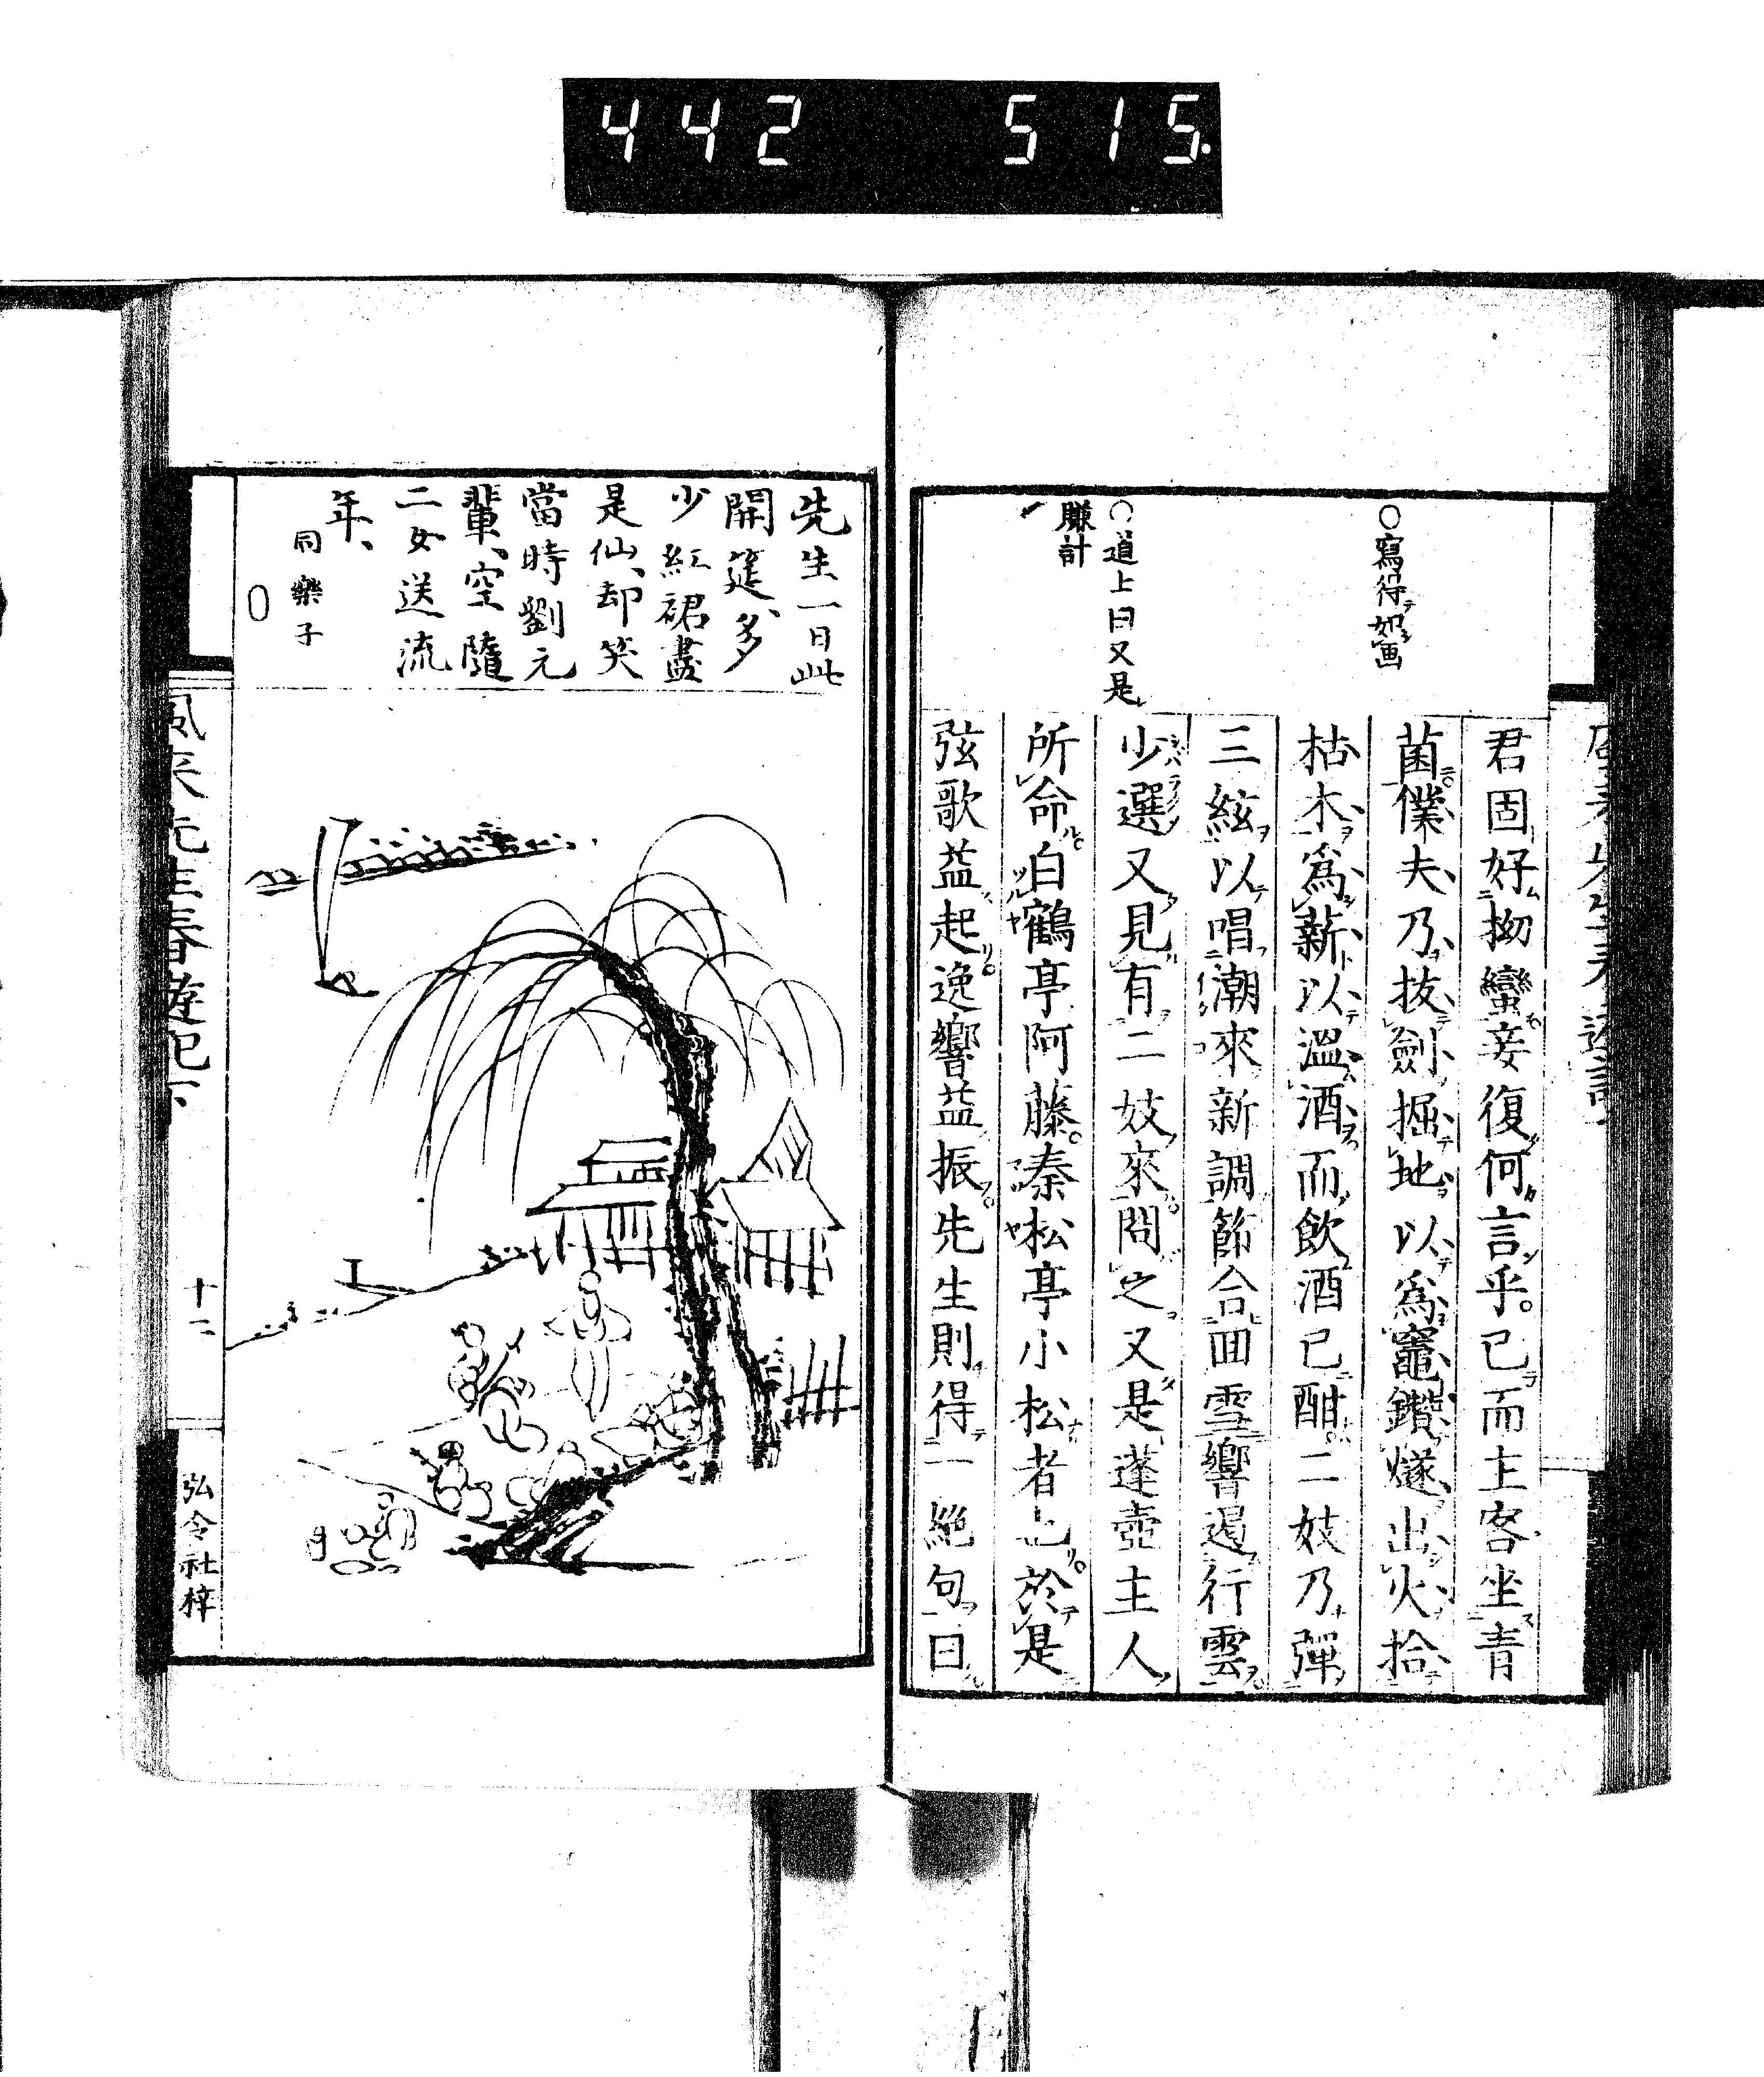 442 515.
○寫得テ如シ画
○道上曰又是
賺計
君固好拗蠻妾復何言乎。已而主客坐青
菌。僕夫乃抜劍掘地以爲竈鑽燧出火拾
枯木爲薪以溫酒而飲酒已酣。二妓乃彈
三絃以唱潮來新調節合回雪響遏行雲。
少選又見有二妓來。問之又是蓬壺主人
所命。白鶴亭阿藤。秦松亭小松者也。於是
弦歌益起。逸響益振。先生則得一絶句曰
先生一日此
開筵、多
少紅裙盡
是仙、却笑
當時劉元
輩、空隨
二女送流
年、
同樂子
風來先生春遊記下
十二
弘令社梓